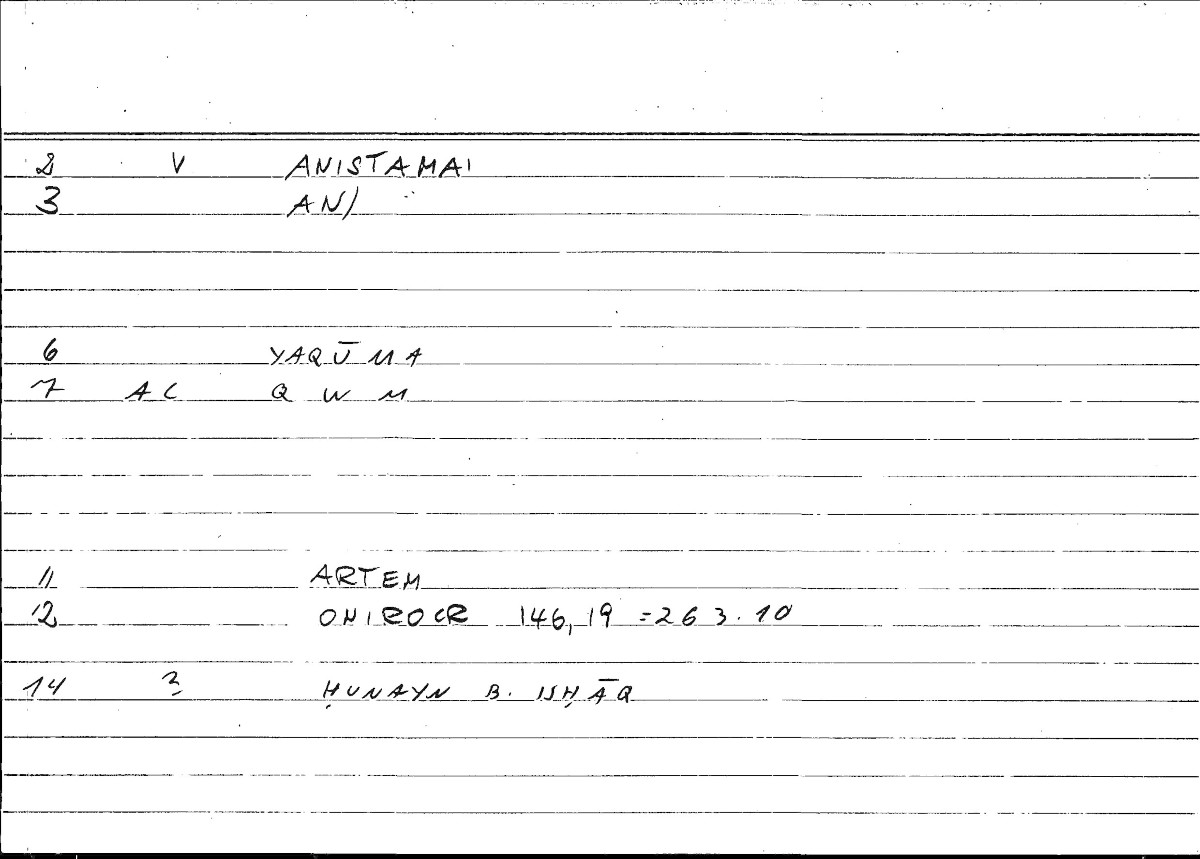 2 V ANISTAMAI
3 AN)
6 YAQŪMA
7 AC Q W M
11 ARTEM
12 ONIROCR 146,19 =263.10
14 ? ḤUNAYN B. ISḤĀQ